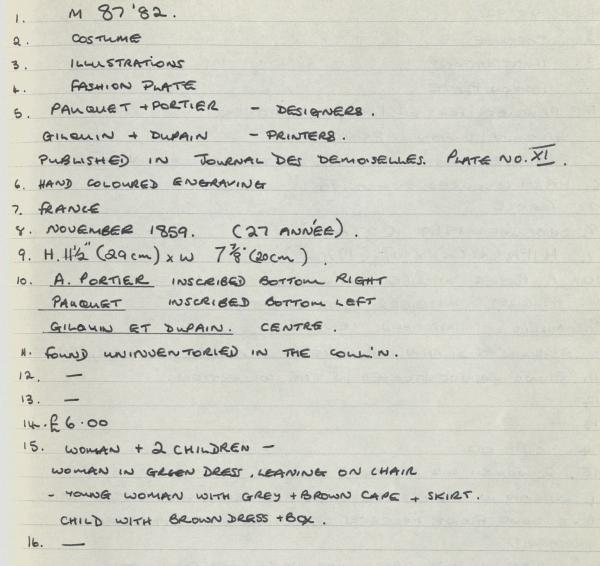 1. M 87'82.
2. COSTUME
3. ILLUSTRATIONS
4. FASHION PLATE
5. PAUQUET + PORTIER - DESIGNERS.
GILQUIN + DUPAIN - PRINTERS.
PUBLISHED IN JOURNAL DES DEMOISELLES. PLATE NO. XI.
6. HAND COLOURED ENGRAVING
7. FRANCE
8. NOVEMBER 1859. (27 ANNÉE).
9. H. 11½" (29cm) x W 7⅞" (20cm).
10. A. PORTIER INSCRIBED BOTTOM RIGHT
PAUQUET INSCRIBED BOTTOM LEFT
GILQUIN ET DUPAIN. CENTRE.
11. FOUND UNINVENTORIED IN THE COLL'N.
12. —
13. —
14. £6.00
15. WOMAN + 2 CHILDREN -
WOMAN IN GREEN DRESS, LEANING ON CHAIR
- YOUNG WOMAN WITH GREY + BROWN CAPE + SKIRT.
CHILD WITH BROWN DRESS + BOX.
16. —